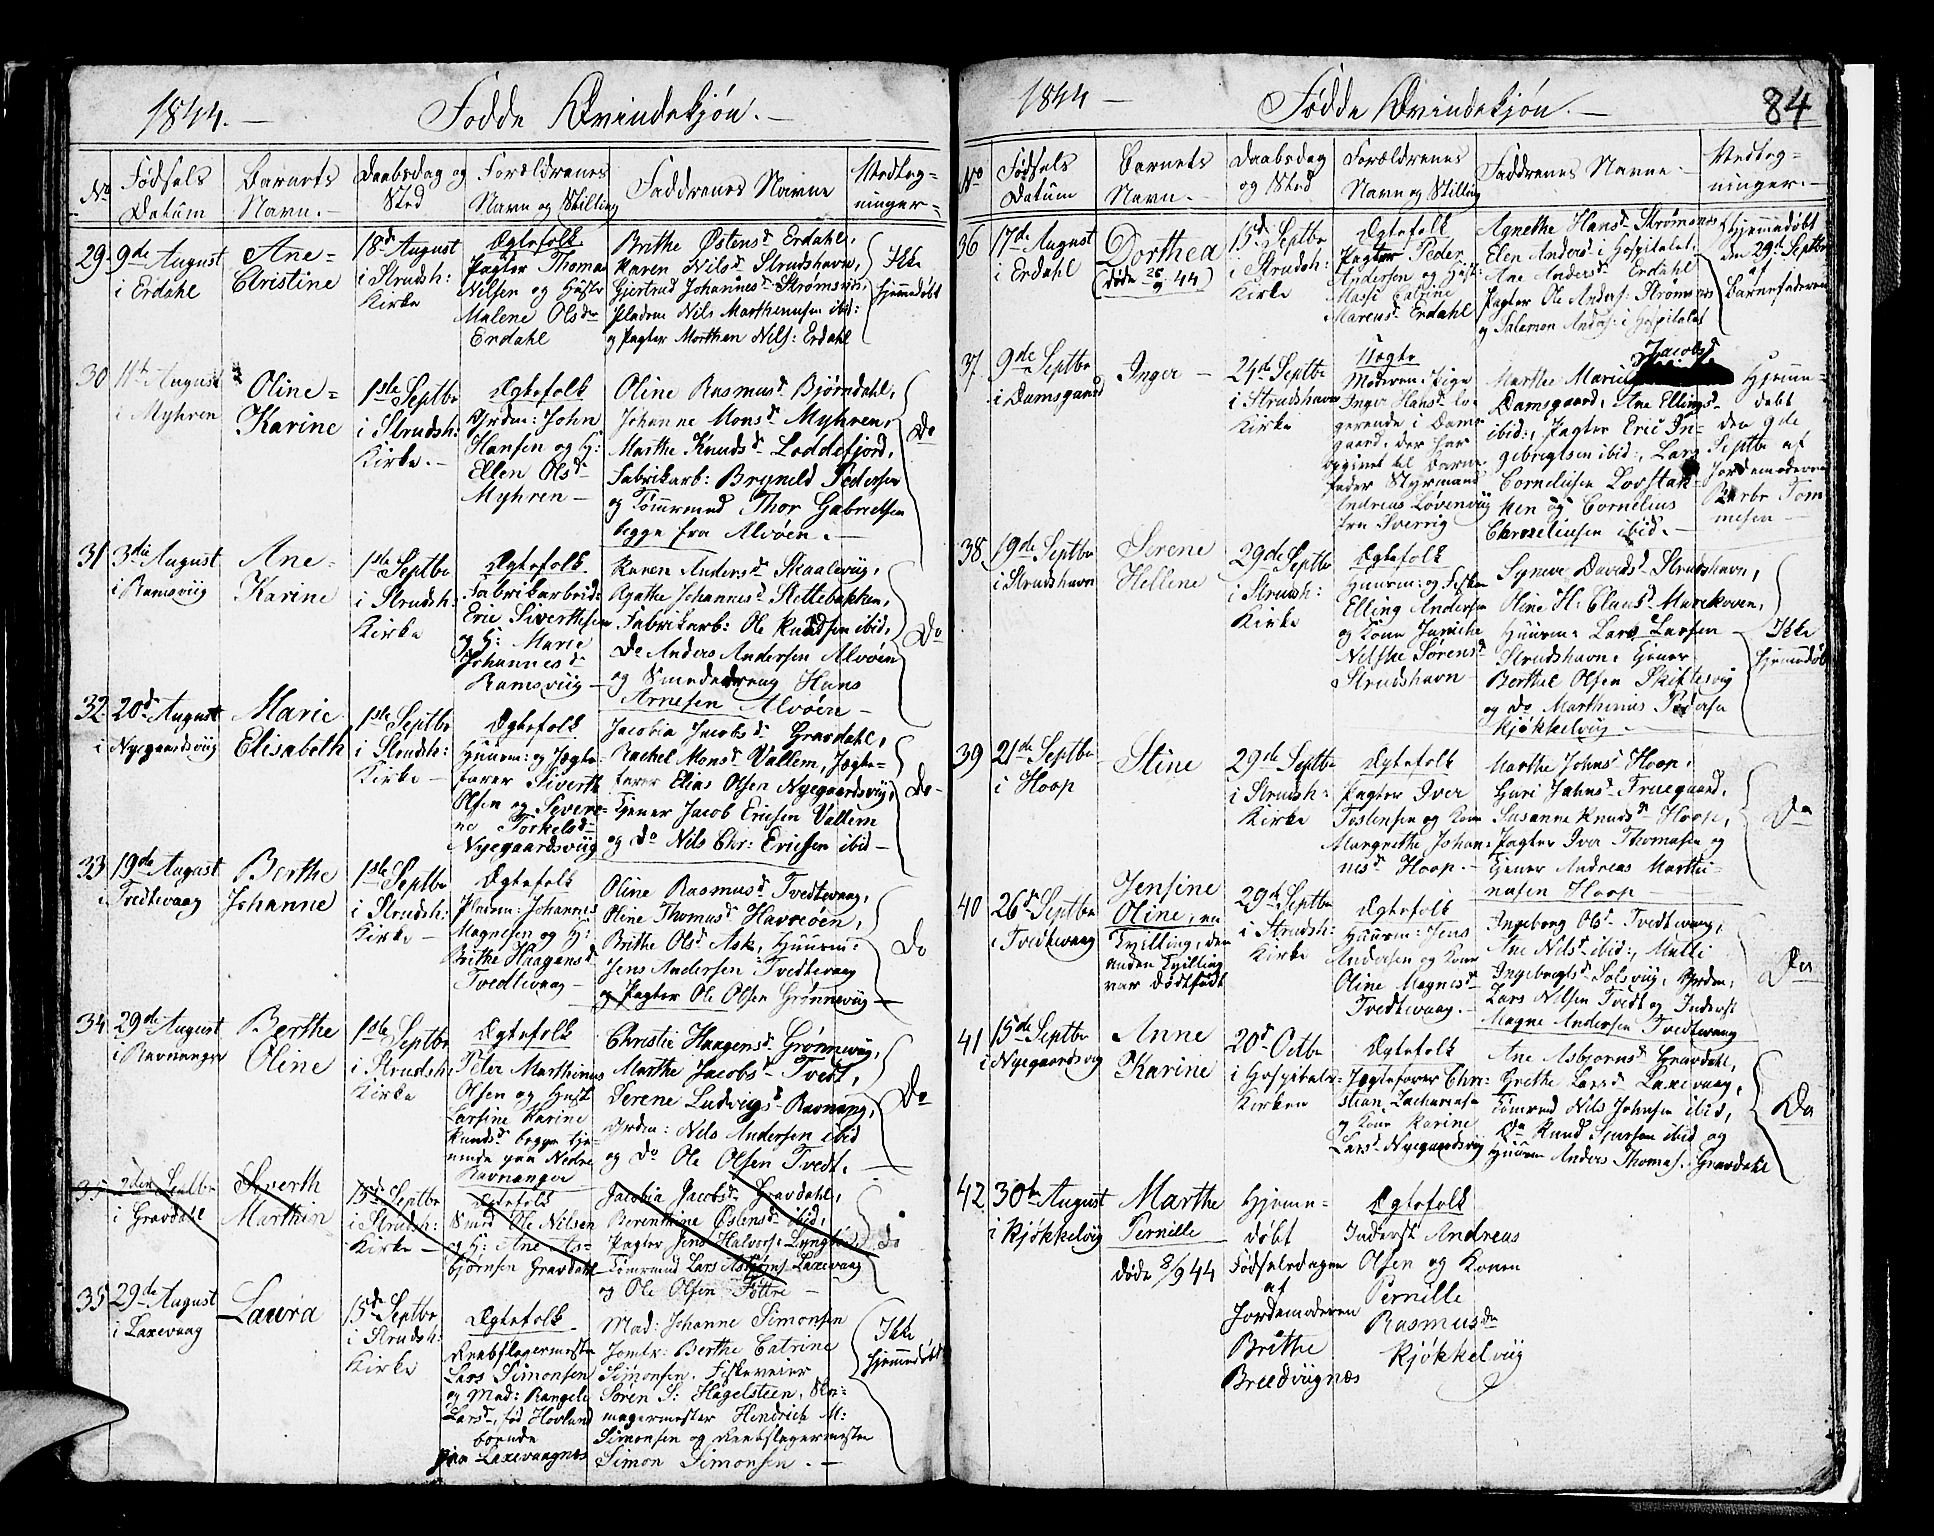 1844. — Fødde Qvindekjøn. —
No
Fødsels Datum
Barnets Navn. —
Daabsdag og Sted
Forældrenes Navn og Stilling
Faddrenes Navne
Vedteg-
ninger —
29
9de August
i Erdahl
Ane-
Christine
18d August
i Strudsh:
Kirke
Ægtefolk
Pagter Thomas
Nilsen og Hustr
Malene Olsdr
Erdahl
Brithe Østensd Erdahl,
Karen Nilsd Strudshavn,
Gjertrud Johannesd Strømsnes,
Pladsm Nils Marthinusen ibid:
og Pagter Morthen Nils: Erdahl
Ikke
hjemedøbt
30
11te August
i Myhren
Oline-
Karine
1ste Septbr
i Strudsh:
Kirke. —
Ægtefolk
Grdm: John
Hansen og H:
Ellen Olsd
Myhren —
Oline Rasmusd Bjørndahl,
Johanne Monsd Myhren,
Marthe Knudsd Loddefjord,
Fabrikarb: Bryneld Pedersen
og Tømrmnd Thor Gabrielsen
begge fra Alvøen. —
Do
31
3die August
i Ramsviig
Ane-
Karine
1ste Septbr
i Strudsh:
Kirke
Ægtefolk
Fabrikarbeid:
Eric Siverthsen
og H: Marie
Johannesd
Ramsviig —
Karen Andersd Skaaleviig,
Agathe Johannesd Slettebakken,
Fabrikarb: Ole Knudsen ibid,
Do Anders Andersen Alvøen
og Smededreng Hans
Arnesen Alvøen —
Do
32
20d August
i Nyegaardsviig
Marie
Elisabeth
1ste Septbr
i Strudsh:
Kirke —
Ægtefolk
Huusm: og Jægte-
farer Siverth
Olsen og Severi-
ne Torkelsd
Nyegaardsviig
Jacobia Jacobsd Gravdahl,
Rachel Monsd Vallem, Jægte-
farer Elias Olsen Nyegaardsviig,
Tjener Jacob Ericsen Vallem
og Do Nils Chr: Ericsen ibid —
Do
33
19de August
i Tvedtevaag
Berthe
Johanne
1ste Septbr
i Strudsh:
Kirke —
Ægtefolk
Pladsm: Johannes
Magnesen og H:
Brithe Haagensd
Tvedtevaag —
Oline Rasmusd Tvedtevaag,
Oline Thomasd Havreøen,
Brithe Olsd Ask, Huusm:
Jens Andersen Tvedtevaag
og Pagter Ole Olsen Grønneviig —
Do
34
29de August
i Ravnanger
Berthe
Oline
1ste Septbr
i Strudsh:
Kirke
Ægtefolk
Peter Marthinus
Olsen og Hust
Larsine Karine
Knudsd begge tje-
nende paa Nedre
Ravnanger
Christie Haagensd Grønneviig,
Marthe Jacobsd Tvedt,
Serene Ludvigsd Ravnang,
Grdm: Nils Andersen ibid
og Do Ole Olsen Tvedt. —
Do
35
2den Septbr
i Gravdahl
Siverth
Marthin
15d Septbr
i Strudsh:
Kirke —
Ægtefolk
Smed Ole Nilsen
og H: Ane As-
bjørnsen Gravdahl
Jacobia Jacobsd Gravdahl,
Berenthine Østensd ibid,
Pagter Jens Halvors:
Tømrmnd Lars Laxevaag
og Ole Olsen —
Do
35
29de August
i Laxevaag
Laura
15de Septbr
i Strudsh:
Kirke
Ægtefolk
Reebslagermester
Lars Simonsen
og Mad: Rangele
Larsd, fød Hovland
boende
paa Laxevaagnes
Mad: Johanne Simonsen
Jomfr: Berthe Catrine
Simonsen, Fiskeveier
Søren S: Hagelsteen,
magermester Hendrich M:
Simonsen og Reebslagermester
Simon Simonsen. —
Ikke
hjemmedøbt
1844 — Fødde Qvindekjøn. — 84
No
Fødsels Datum
Barnets Navn. —
Daabsdag og Sted
Forældrenes Navn og Stilling
Faddrenes Navne —
Vedteg-
ninger. —
36
17de August
i Erdahl
Dorthea
(døde 26/9 44)
15d Septbr
i Strudsh:
Kirke
Ægtefolk
Pagter Peder
Andersen og Hust:
Massi Catrine
Marcusd Erdahl
Agnethe Hansd Strømsnes
Elen Andersd i Hospitalet,
Ane Andersd Erdahl
Pagter Ole Anders: Strømsnes
og Salamon Anders: i Hospitalet
Hjemmedøbt
den 29d Septbr
af
Barnefaderen
37.
9de Septbr
i Damsgaard
Inger —
24de Septbr
i Strudshavn
Kirke
Uægte
Moderen: Pige
Inger Hansd Lo-
gerende i Dams-
gaard, der har
opgivet til Barne-
fader Styrmand
Andreas Løvenviig
fra Sverrig
Marthe Marie Jacobsd
Damsgaard, Ane Ellingsd
ibid:, Pagter Eric In-
gebrigtsen ibid:, Lars
Cornelisen Lovstak-
ken og Cornelius
ibid. —
Hjemme-
døbt
den 9de
Septbr af
Jordemoderen
Barbr Tom-
mesen —
38.
19de Septbr
i Strudshavn
Serene
Hellene
29de Septbr
i Strudsh:
Kirke
Ægtefolk
Huusm: og Fisker
Elling Andersen
og Kone Juriche
Nilske Sørensd
Strudshavn —
Synive Davidsd Strudshavn,
Oline H: Clausd
Huusm: Lars Larsen —
Strudshavn, Tjener
Berthel Olsen Skiftesviig
og Do Marthinus Pedersen
Kjøkkelviig —
Ikke
hjemedøbt
39
21de Septbr
i Hoop
Stine
29de Septbr
i Strudsh:
Kirke
Ægtefolk
Pagter Iver
Tostensen og Kone
Margrethe Johan-
nesd Hoop. —
Marthe Johnsd Hoop,
Guri Jahnsd Fruegaard,
Susanne Knudsd Hoop,
Pagter Iver Thomasen og
Tjener Andreas Marthi-
nusen Hoop —
Do
40
26d Septbr
i Tvedtevaag
Jensine
Oline, en
Tvilling, den
anden Tvilling
var dødtfødt
29d Septbr
i Strudsh:
Kirke
Ægtefolk
Huusm: Jens
Andersen og Kone
Oline Magnesd
Tvedtevaag. —
Ingeborg Olsd Tvedtevaag,
Ane Nilsd ibid:, Malli
Ingebregtsd Solsviig, Grdm:
Lars Nilsen Tvedt og Inderst
Magne Andersen Tvedtevaag
Do
41
15de Septbr
i Nyegaardsviig
Anne
Karine
20d Octbr
i Hospitals-
Kirken
Ægtefolk
Jægtefarer Chri-
stian Zachariasen
og Kone Karine
Larsd Nyegaardsviig
Ane Asbjørnsd Gravdahl,
Grethe Larsd Laxevaag,
Tømrmd Nils Johnsen ibid,
Do Knud Sjursen ibid og
Huusm Anders Thomas: Gravdahl
Do
42
30te August
i Kjøkkelviig
Marthe
Pernille
døde 8/9 44
Hjemme-
døbt
Fødselsdagen
af
Jordemoderen
Brithe
Breedviignæs
Ægtefolk
Inderst Andreas
Olsen og Konen
Pernille
Rasmusdr
Kjøkkelviig